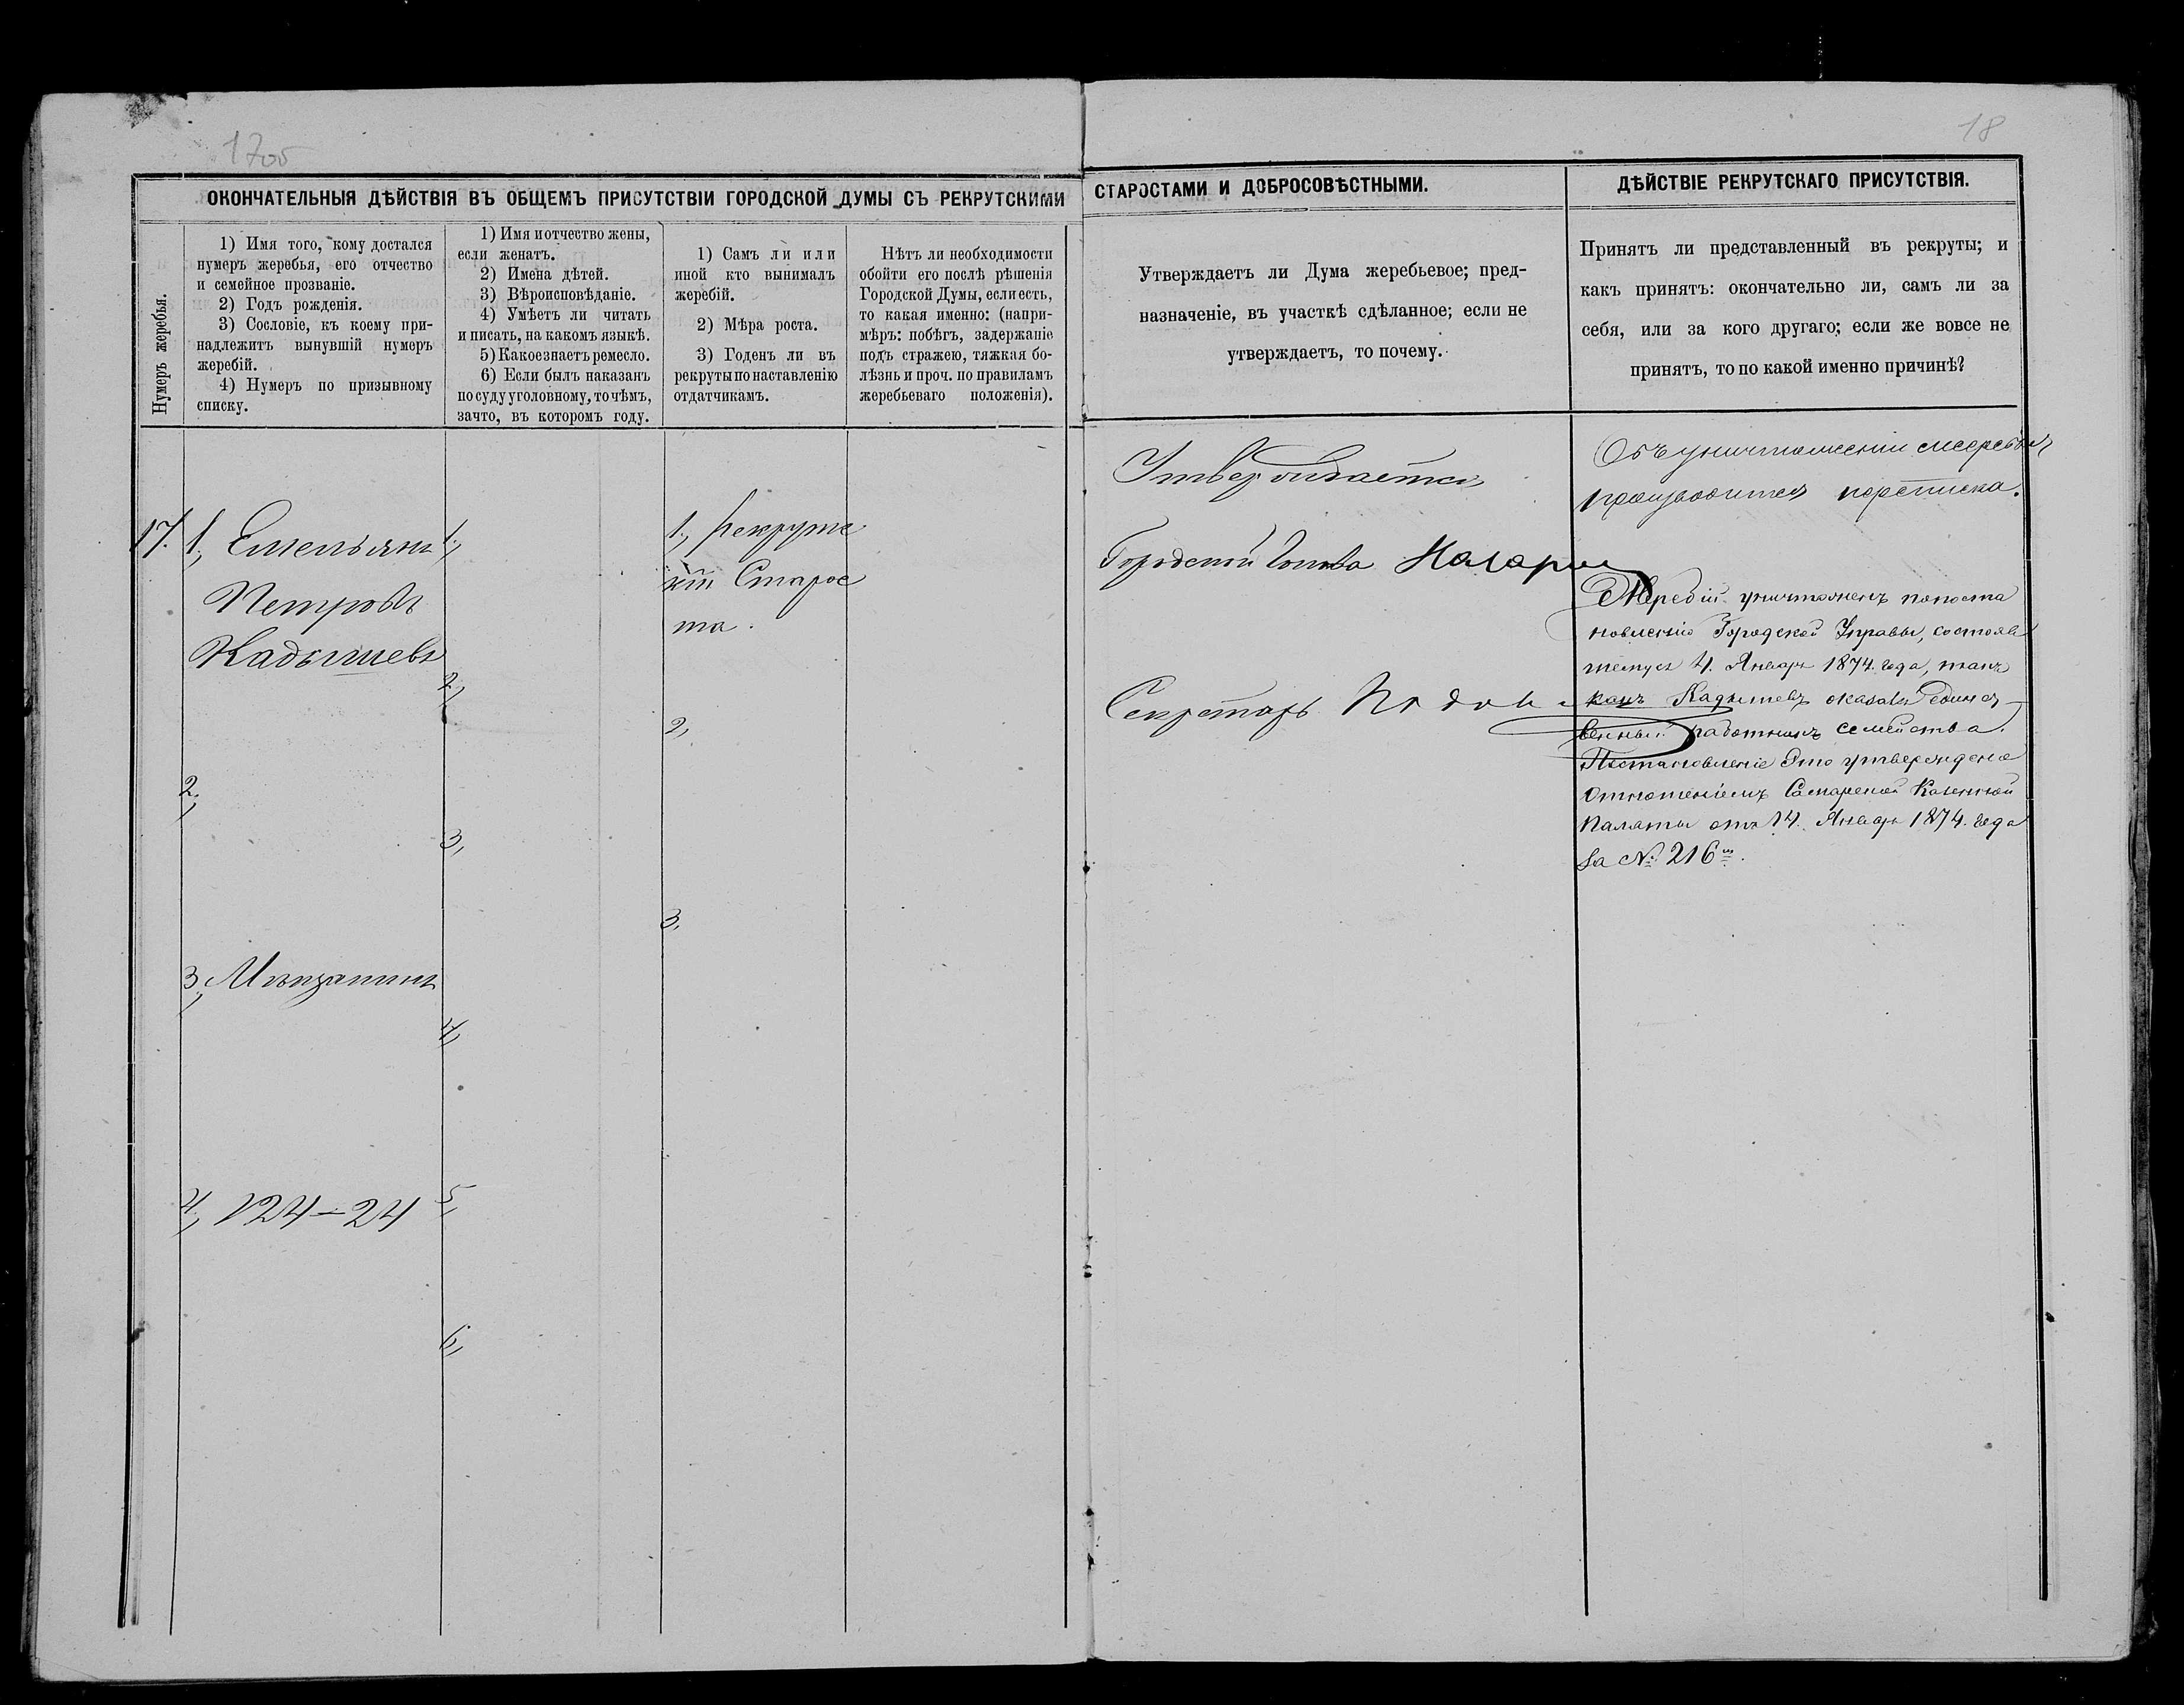 17об
18
ОКОНЧАТЕЛЬНЫЯ ДѢЙСТВІЯ ВЪ ОБЩЕМЪ ПРИСУТСТВІИ ГОРОДСКОЙ ДУМЫ СЪ РЕКРУТСКИМИ
СТАРОСТАМИ И ДОБРОСОВѢСТНЫМИ.
ДѢЙСТВІЕ РЕКРУТСКАГО ПРИСУТСТВІЯ.
Нумеръ жеребья.
1) Имя того, кому достался
нумеръ жеребья, его отчество
и семейное прозваніе.
2) Годъ рожденія.
3) Сословіе, къ коему при-
надлежитъ вынувшій нумеръ
жеребій.
4) Нумеръ по призывному
списку.
1) Имя и отчество жены,
если женатъ.
2) Имена дѣтей.
3) Вѣроисповѣданіе.
4) Умѣетъ ли читать
и писать, на какомъ языкѣ.
5) Какое знаетъ ремесло.
6) Если былъ наказанъ
по суду уголовному, то чѣмъ,
за что, въ которомъ году.
1) Самъ ли или
иной кто вынималъ
жеребій.
2) Мѣра роста.
3) Годенъ ли въ
рекруты по наставленію
отдатчикамъ.
Нѣтъ ли необходимости
обойти его послѣ рѣшенія
Городской Думы, если есть,
то какая именно: (напри-
мѣръ: побѣгъ, задержаніе
подъ стражею, тяжкая бо-
лѣзнь и проч. по правиламъ
жеребьеваго положенія).
Утверждаетъ ли Дума жеребьевое; пред-
назначеніе, въ участкѣ сдѣланное; если не
утверждаетъ, то почему.
Принятъ ли представленный въ рекруты; и
какъ принятъ: окончательно ли, самъ ли за
себя, или за кого другаго; если же вовсе не
принятъ, то по какой именно причинѣ?
17. 1, Емельянъ
Петровъ
Кадышевъ
2,
3, Мѣщанинъ
4, 124–24
1,
2,
3,
4,
5,
6,
1, Рекрутс
кій Старос
та.
2,
3,
Утверждается
Городской Голова Назаровъ
Секретарь
Объ уничтоженіи жеребья
производится переписка.
Жеребій уничтоженъ по поста
новленію Городской Управы, состояв
шемуся 4. Января 1874. года, такъ
какъ Кадышевъ оказался единст
венный работникъ семейства.
Постановленіе это утверждено
отношеніемъ Самарской Казенной
Палаты отъ 14. Января 1874. года
за № 216м.